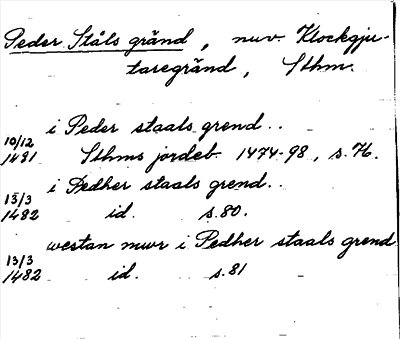 Peder Ståls gränd, nuv. Klockgju-
taregränd, Sthm.
i Peder staals grend..
10/12
1481 Sthms jordeb. 1474-98, s.76.
i Pedher staals grend..
13/3
1482 id. s.80.
westan mwr i Pedher staals grend
13/3
1482 id. s.81